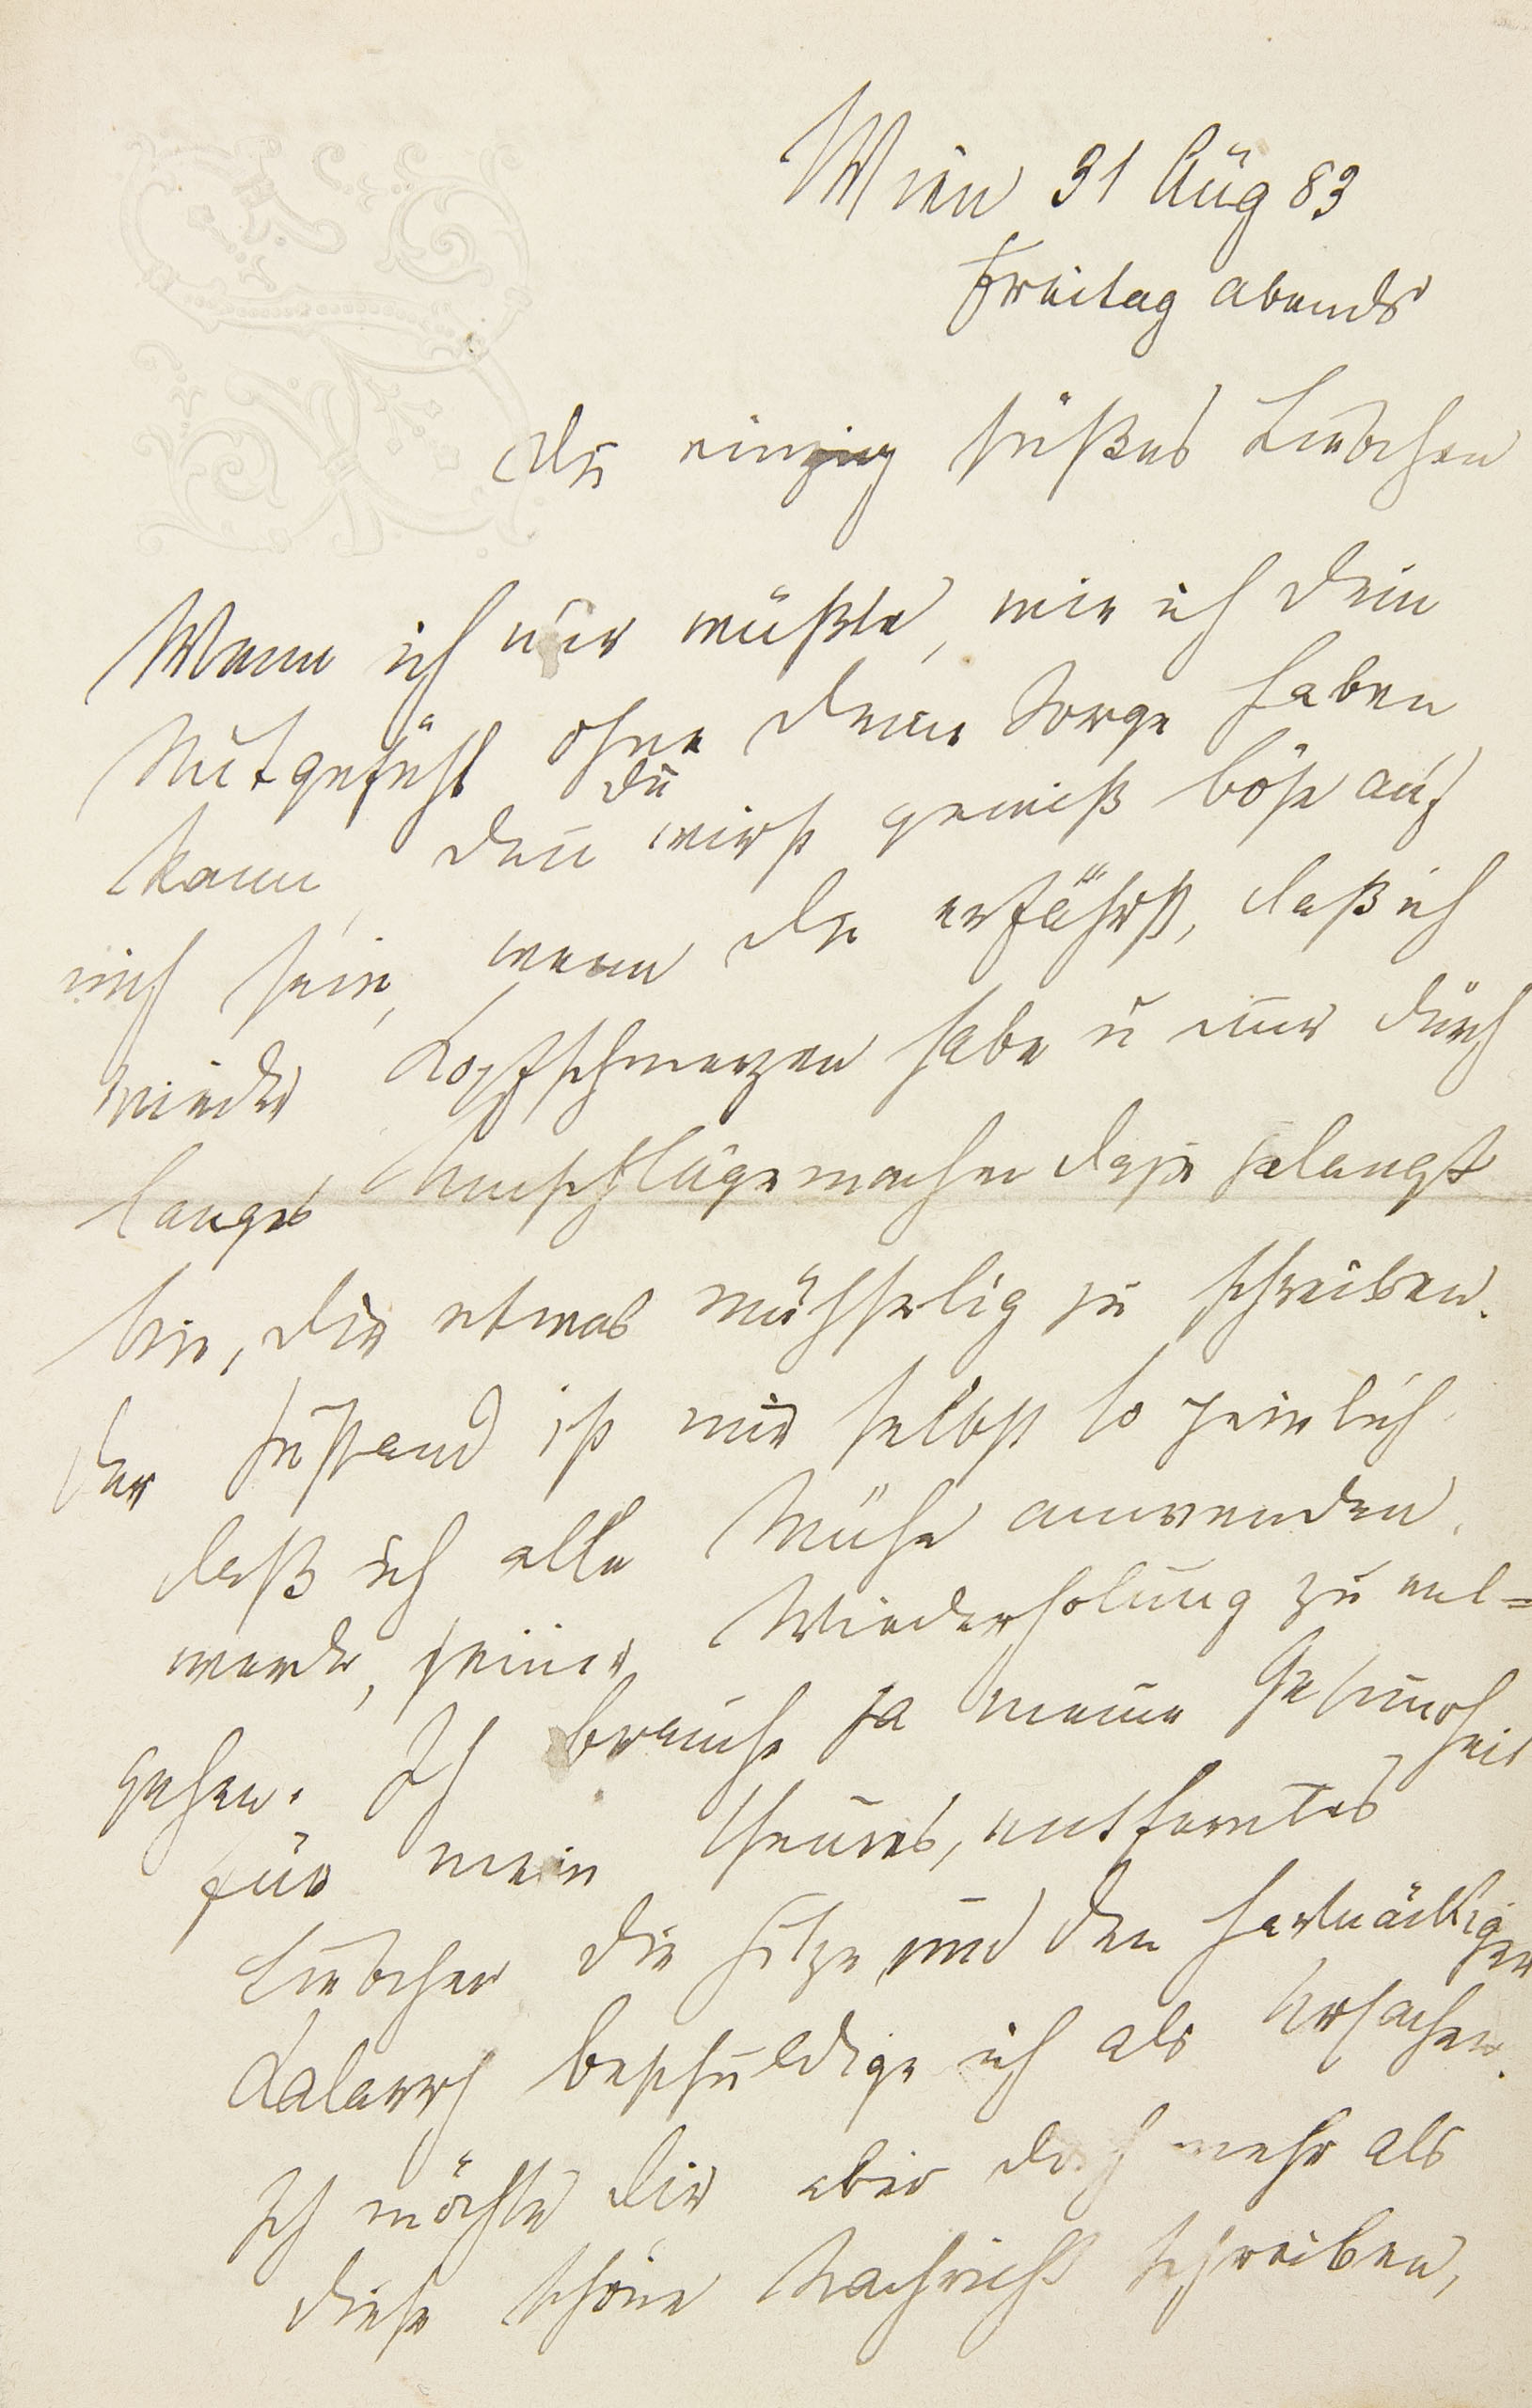 Wien 31 Aug 83
Freitag abends
Du einzig süßes Liebchen
Wenn ich nur wüßte, wie ich Dein
Mitgefühl ohne Deine Sorge haben
kann, den̅ Du wirst gewiß böse auf
mich sein, wenn Du erfährst, daß ich
wieder Kopfschmerzen habe u nur durch
langes Umschlägemachen dazu gelangt
bin, Dir etwas mühselig zu schreiben.
Der Zustand ist mir selbst so peinlich
daß ich alle Mühe anwenden
werde, seiner Wiederholung zu ent=
gehen. Ich brauche ja meine Gesundheit
für mein theures, entferntes
Liebchen. Die Hitze und den hartnäckigen
Katarrh beschuldige ich als Ursachen.
Ich möchte Dir aber doch mehr als
diese schöne Nachricht schreiben,